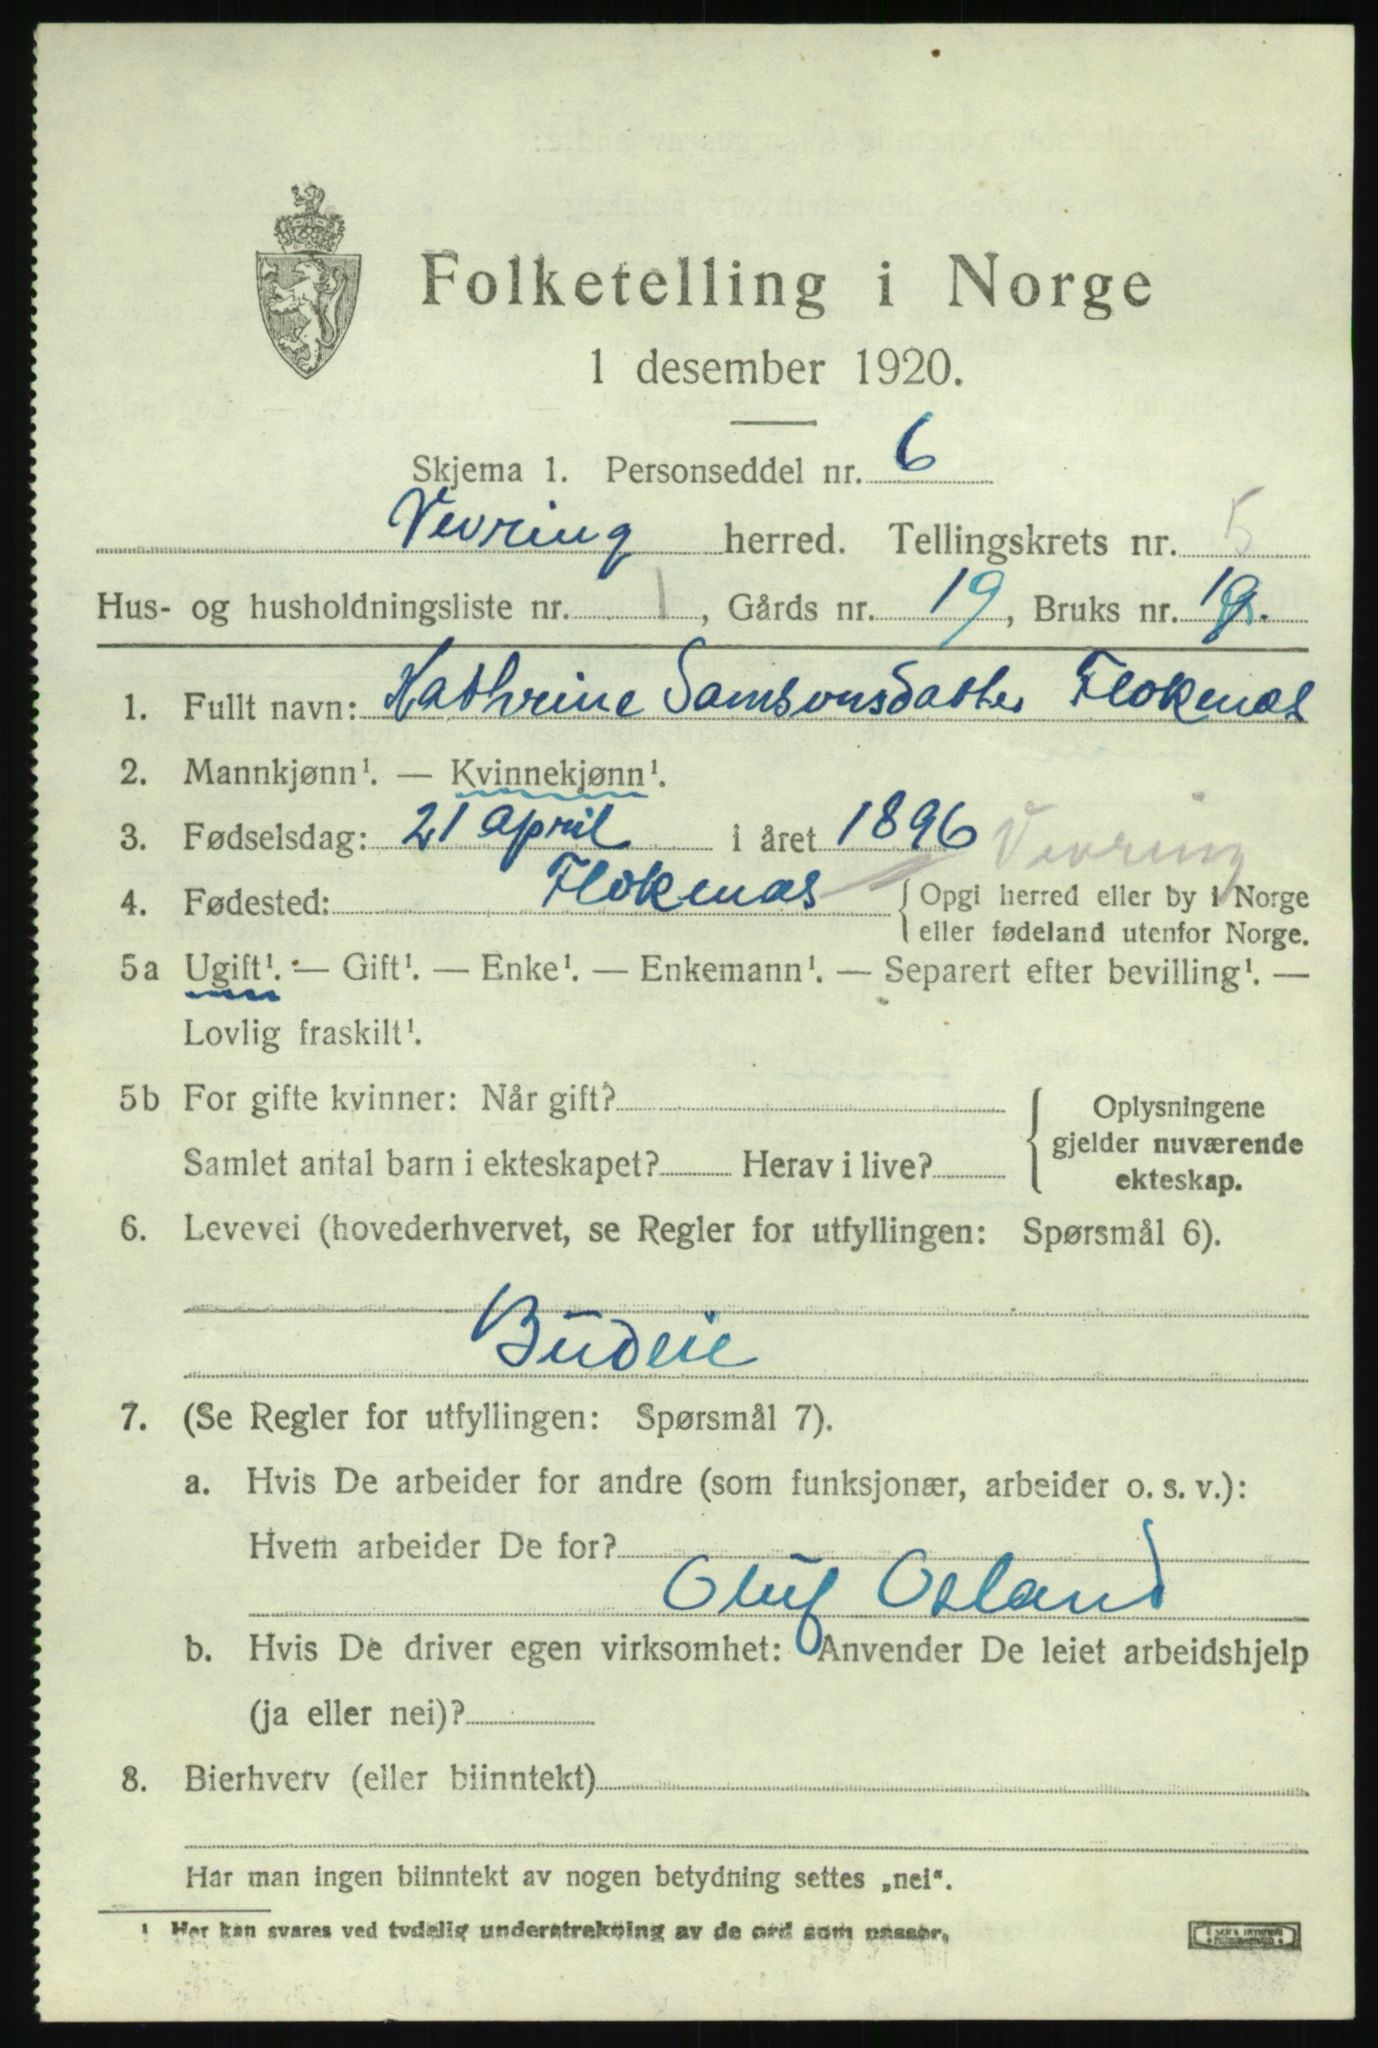 Folketelling i Norge
1 desember 1920.
Skjema 1. Personseddel nr. 6
Vevring herred. Tellingskrets nr. 5
Hus- og husholdningsliste nr. 1, Gårds nr. 19, Bruks nr.
1. Fullt navn: Kathrine Samsonsdatter Flokenæs
2. Mannkjønn¹. — Kvinnekjønn¹.
3. Fødselsdag: 21 april i året 1896 Vevring
4. Fødested: Flokenæs { Opgi herred eller by i Norge
eller fødeland utenfor Norge.
5a Ugift¹. — Gift¹. — Enke¹. — Enkemann¹. — Separert efter bevilling¹. —
Lovlig fraskilt¹.
5b For gifte kvinner: Når gift?
Samlet antal barn i ekteskapet? Herav i live?
Oplysningene
gjelder nuværende
ekteskap.
6. Levevei (hovederhvervet, se Regler for utfyllingen: Spørsmål 6).
Budeie
7. (Se Regler for utfyllingen: Spørsmål 7).
a. Hvis De arbeider for andre (som funksjonær, arbeider o. s. v.):
Hvem arbeider De for?
Oluf Osland
b. Hvis De driver egen virksomhet: Anvender De leiet arbeidshjelp
(ja eller nei)?
8. Bierhverv (eller biinntekt)
Har man ingen biinntekt av nogen betydning settes „nei“.
¹ Her kan svares ved tydelig understrekning av de ord som passer.